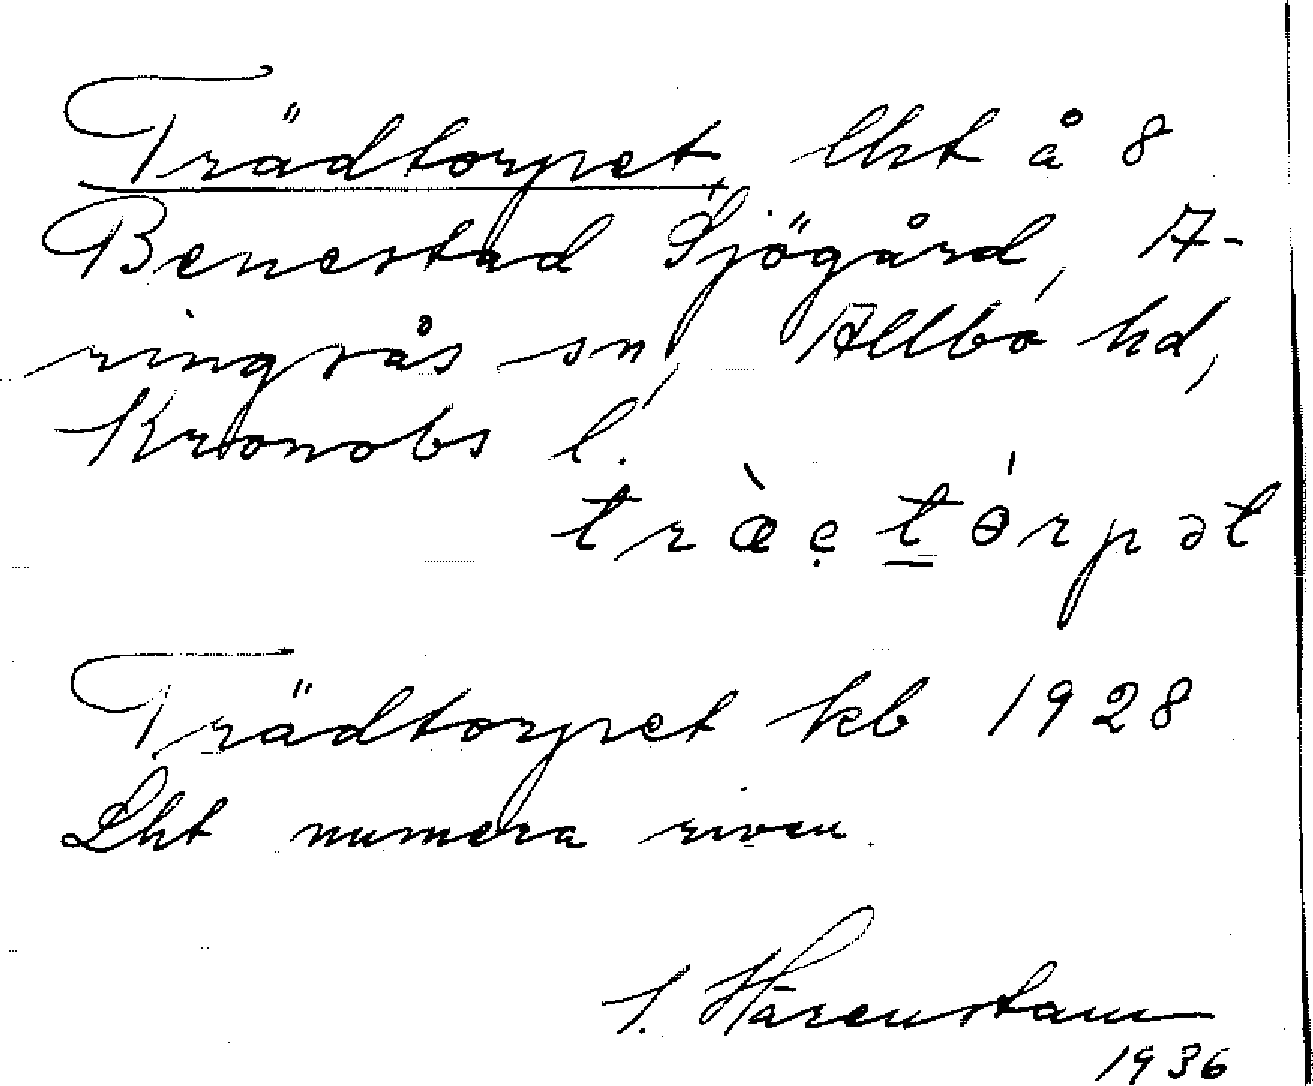 Trädtorpet, lht å 8
Benestad Sjögård, A-
ringsås sn, Allbo hd,
Kronobs l.
træ̀e̥ tɵ́rpət
Trädtorpet kb 1928
Lht numera riven.
S. Härenstam
1936